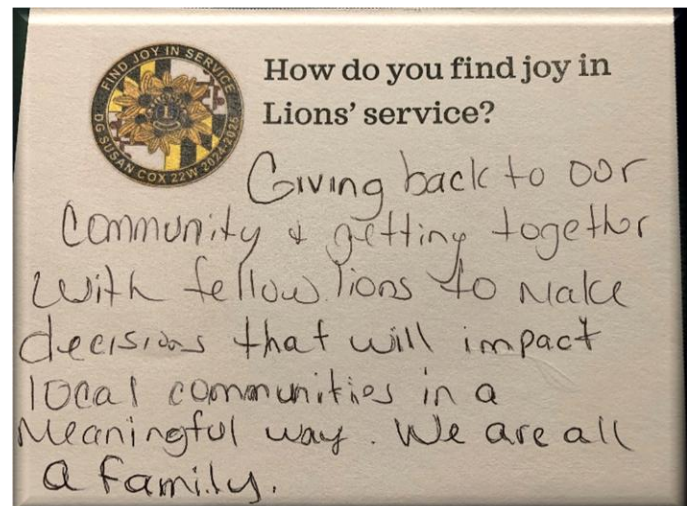 FIND JOY IN SERVICE
L
DG SUSAN COX 22W 2024-2025
How do you find joy in
Lions' service?
Giving back to our
Community & getting together
with fellow lions to make
decisions that will impact
local communities in a
Meaningful way. We are all
a family.